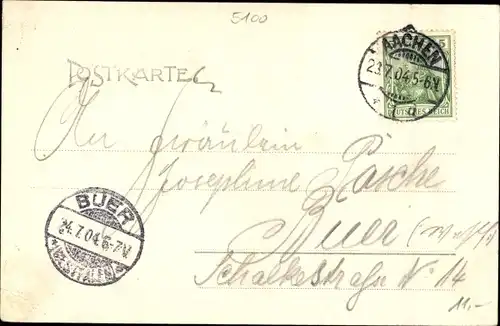 5100
POSTKARTE
AACHEN
23.7.04.5-6N
DEUTSCHES REICH
An Fräulein
Josephine Pasche
Buer (Westf)
Schalkestraße No 14
BUER
24.7.04.6-7V
*(WESTFALEN)*
11,-